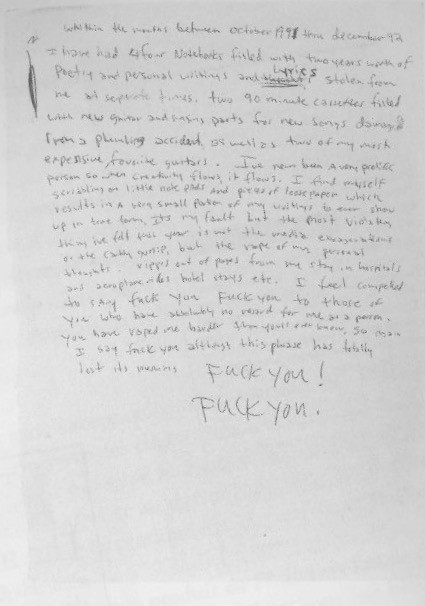 whithin the months between october 1991 thru december 92
I have had 4 four Notebooks filled with two years worth of
Poetry and personal writings and Lyrics stolen from
me at separate times. two 90 minute cassettes filled
with new guitar and singing parts for new songs damaged
from a plumbing accident, as well as two of my most
expensive favorite guitars. I've never been a very prolific
person so when creativity flows, it flows. I find myself
scribbling on little note pads and pieces of loose paper which
results in a very small portion of my writings to ever show
up in true form. Its my fault but the most violating
thing ive felt this year is not the media exxagerations
or the catty gossip, but the rape of my personal
thoughts. ripped out of pages from my stay in hospitals
and aeroplane rides hotel stays etc. I feel compelled
to say fuck you Fuck you to those of
you who have absolutely no regard for me as a person.
you have raped me harder than you'll ever know. so again
I say fuck you although this phrase has totally
lost its meaning FUCK YOU!
FUCK YOU.